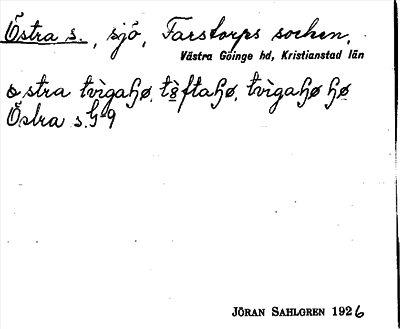 Östra s., sjö, Farstorps socken,
Västra Göinge hd, Kristianstad län
östra tvìgahø, tö̀ftahø, tvìgahø hø
Östra s. G 9
JÖRAN SAHLGREN 1926